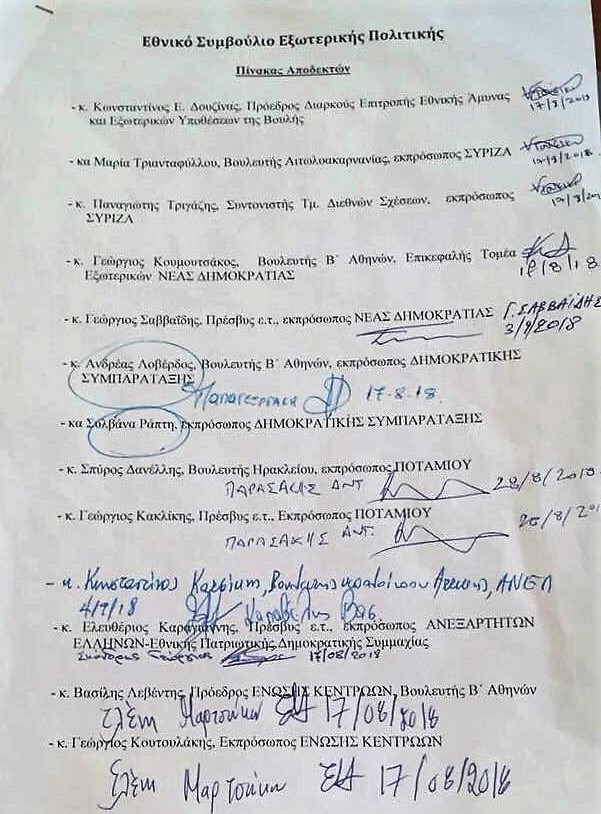 Εθνικό Συμβούλιο Εξωτερικής Πολιτικής
Πίνακας Αποδεκτών
- κ. Κωνσταντίνος Ε. Δουζίνας, Πρόεδρος Διαρκούς Επιτροπής Εθνικής Άμυνας
και Εξωτερικών Υποθέσεων της Βουλής
17/8/2018
- κα Μαρία Τριανταφύλλου, Βουλευτής Αιτωλοακαρνανίας, εκπρόσωπος ΣΥΡΙΖΑ
17/8/2018
- κ. Παναγιώτης Τριγάζης, Συντονιστής Τμ. Διεθνών Σχέσεων, εκπρόσωπος
ΣΥΡΙΖΑ
17/8/2018
- κ. Γεώργιος Κουμουτσάκος, Βουλευτής Β΄ Αθηνών, Επικεφαλής Τομέα
Εξωτερικών ΝΕΑΣ ΔΗΜΟΚΡΑΤΙΑΣ
- κ. Γεώργιος Σαββαΐδης, Πρέσβυς ε.τ., εκπρόσωπος ΝΕΑΣ ΔΗΜΟΚΡΑΤΙΑΣ Γ. ΣΑΒΒΑΪΔΗΣ
3/9/2018
- κ. Ανδρέας Λοβέρδος, Βουλευτής Β΄ Αθηνών, εκπρόσωπος ΔΗΜΟΚΡΑΤΙΚΗΣ
ΣΥΜΠΑΡΑΤΑΞΗΣ
17-8-18
- κα Σολβάνα Ράπτη, εκπρόσωπος ΔΗΜΟΚΡΑΤΙΚΗΣ ΣΥΜΠΑΡΑΤΑΞΗΣ
- κ. Σπύρος Δανέλλης, Βουλευτής Ηρακλείου, εκπρόσωπος ΠΟΤΑΜΙΟΥ
ΠΑΡΑΣΑΚΗΣ ΑΝΤ 28/8/2018
- κ. Γεώργιος Κακλίκης, Πρέσβυς ε.τ., Εκπρόσωπος ΠΟΤΑΜΙΟΥ
ΠΑΡΑΣΑΚΗΣ ΑΝΤ.
- κ. Κωνσταντίνος ΑΝΕΛ
4/9/18
- κ. Ελευθέριος Καραγιάννης, Πρέσβυς ε.τ., εκπρόσωπος ΑΝΕΞΑΡΤΗΤΩΝ
ΕΛΛΗΝΩΝ-Εθνική Πατριωτικής Δημοκρατικής Συμμαχίας
17/08/2018
- κ. Βασίλης Λεβέντης, Πρόεδρος ΕΝΩΣΗΣ ΚΕΝΤΡΩΩΝ, Βουλευτής Β΄ Αθηνών
Ελένη 17/08/2018
- κ. Γεώργιος Κουτουλάκης, Εκπρόσωπος ΕΝΩΣΗΣ ΚΕΝΤΡΩΩΝ
Ελένη 17/08/2018